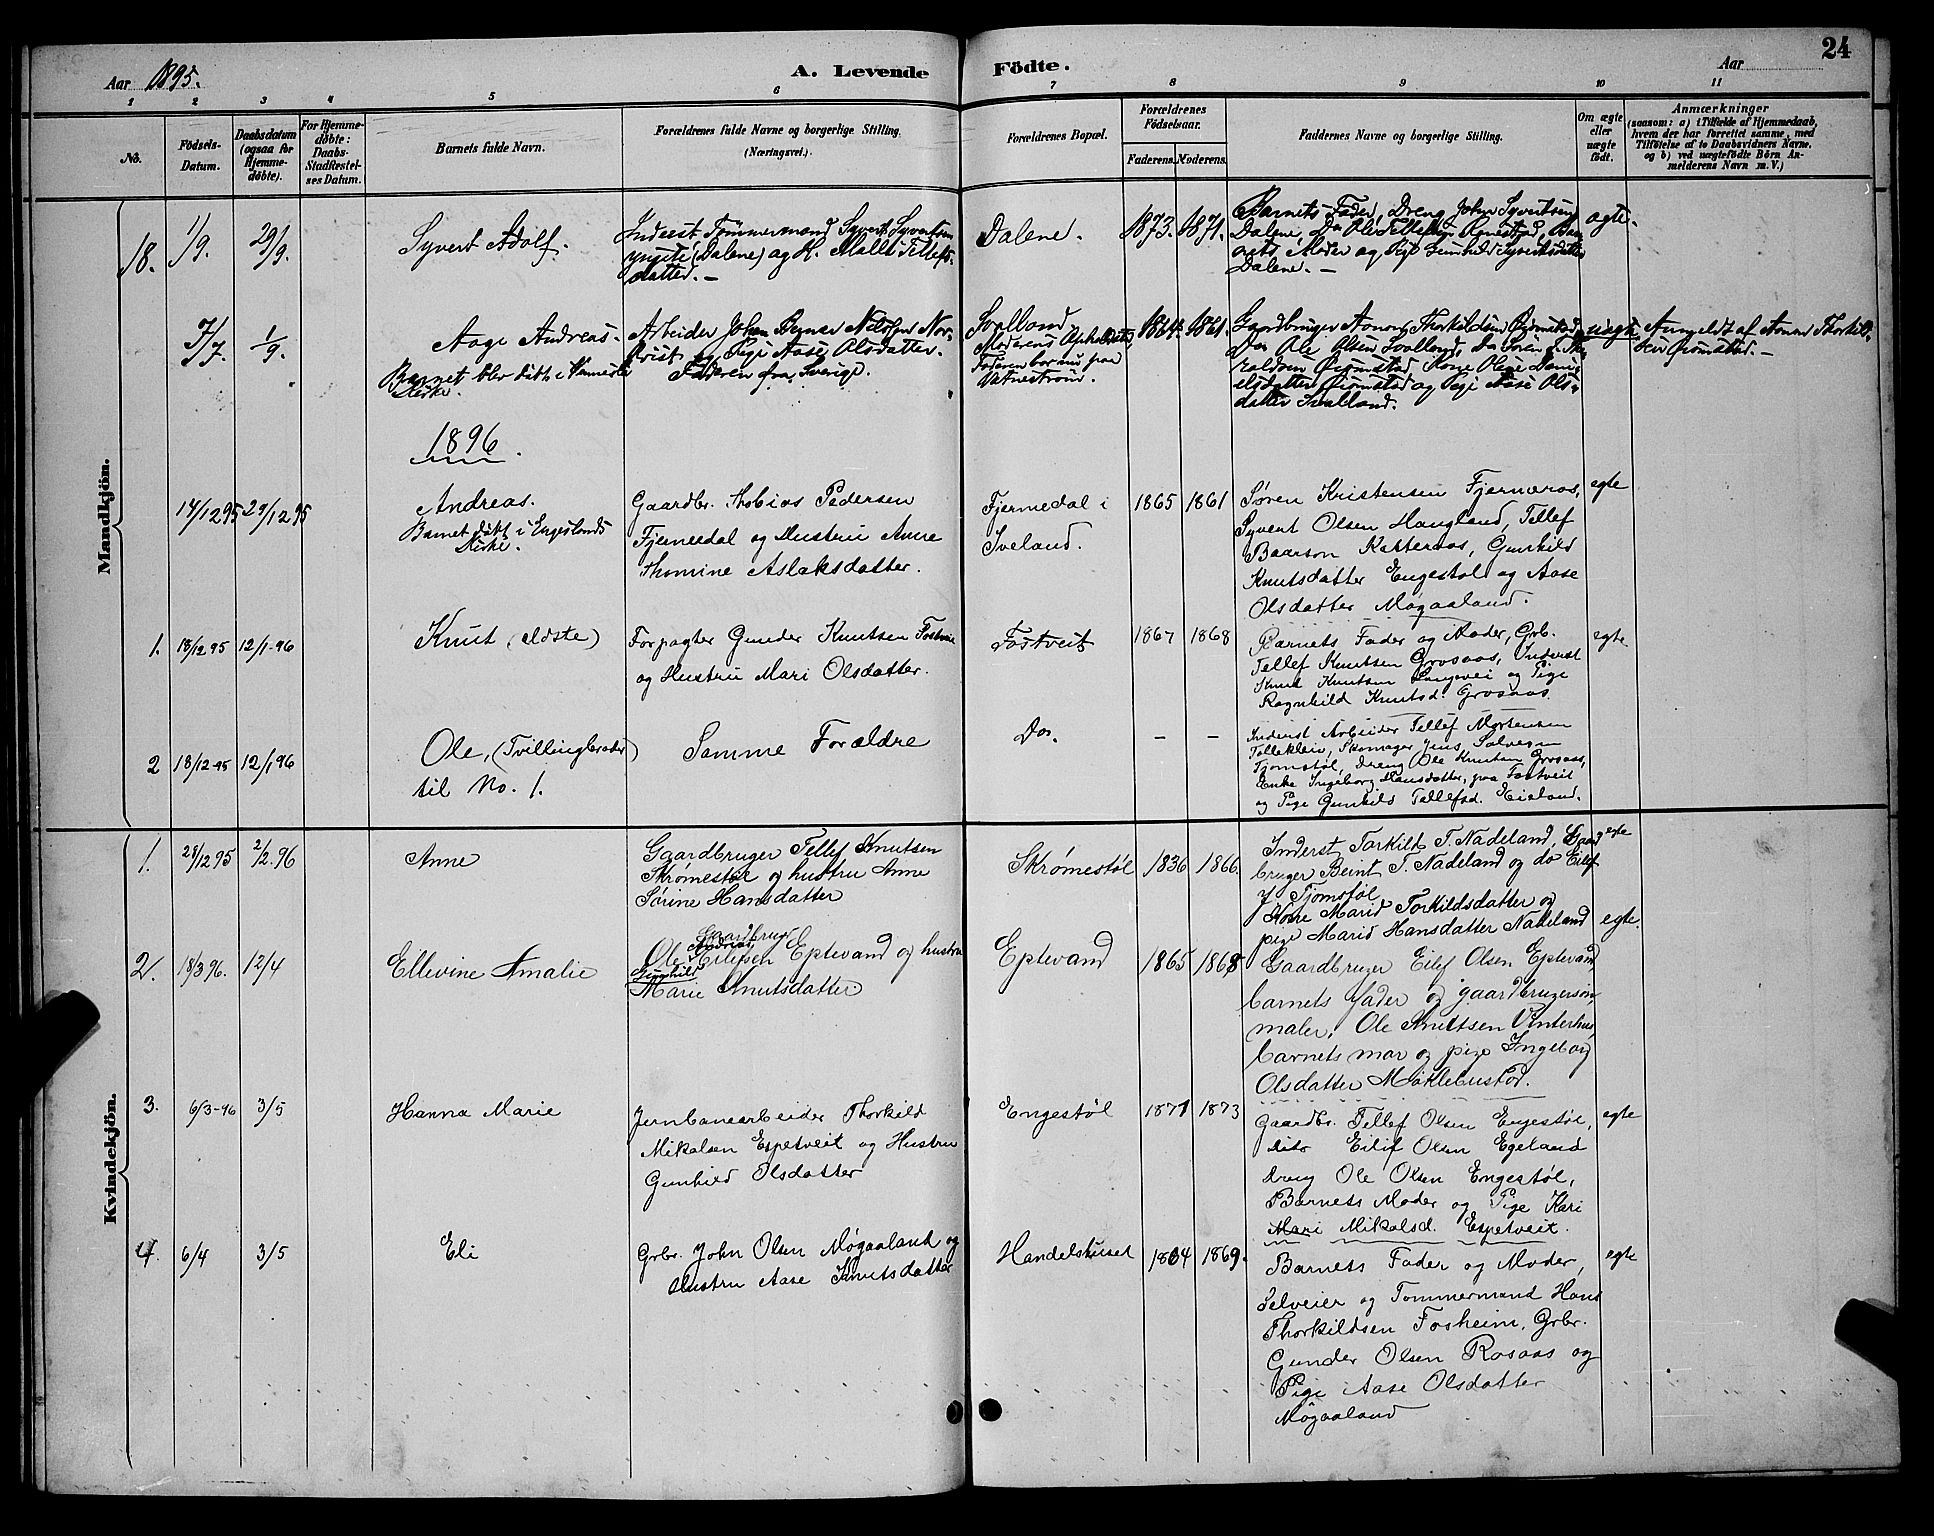 Aar 1895.
A. Levende Födte.
Aar
24
1 2 3 4 5 6 7 8 9 10 11
No.
Födsels-
Datum.
Daabsdatum
(ogsaa for
Hjemme-
döbte).
For Hjemme-
döbte:
Daabs-
Stadfæstel-
ses Datum.
Barnets fulde Navn.
Forældrenes fulde Navne og borgerlige Stilling.
(Næringsvei.)
Forældrenes Bopæl.
Forældrenes
Födselsaar.
Faderens. Moderens.
Faddernes Navne og borgerlige Stilling.
Om ægte
eller
uægte
födt.
Anmærkninger
(saasom: a) i Tilfælde af Hjemmedaab,
hvem der har forrettet samme, med
Tilföielse af to Daabsvidners Navne,
og b) ved uægtefödte Börn An-
melderens Navn m. V.)
Mandkjön.
18. 1/9. 29/9.
Syvert Adolf.
Inderst Tømmermand Syvert Syvertsen
(Dalene) og H. Malli Tellefs-
datter. —
Dalene.
1873. 1871.
Barnets Fader, Dreng John Syvertsen
Dalene, Do Ole Tellefsen
nets Moder og Pige Gunhild Syvertsdatter
Dalene. —
ægte.
7/7. 1/9.
Aage Andreas.
Barnet blev døbt i Vennesla
Kirke.
Arbeider Johan Nilsson
og Pige Aase Olsdatter.
Faderen fra Sverige.
Svalland
Moderens Opholdssted,
Faderen bor nu paa
Vatnestrøm.
1864. 1861.
Gaardbruger Aanon Thorkildsen Øiømstad,
Do Ole Olsen Svalland, Do Søren
Øiømstad, Kone Olene Dani-
elsdatter Øiømstad og Pige Aase Ols-
datter Svalland.
uægte
Anmeldt af Aanon Thorkild-
sen Øiømstad. —
1896.
14/12 95 29/12 95
Andreas.
Barnet døbt i Engeslands
Kirke.
Gaardbr. Thobias Pedersen
Fjermedal og Hustru Anne
Thomine Aslaksdatter.
Fjermedal i
Iveland.
1865 1861
Søren Kristensen Fjermeros,
Syvert Olsen Haugland, Tellef
Baarson Katteraas, Gunhild
Knutsdatter Engestøl og Aase
Olsdatter Møgaaland.
egte
1. 18/12 95 12/1-96
Knut (ældste)
Forpagter Gunder Knutsen Fostvei
og Hustru Mari Olsdatter.
Fostveit
1867 1868
Barnets Fader og Moder, Grb.
Tellef Knutsen Grosaas, Inderst
Knut Knutsen Langevei og Pige
Ragnhild Knutsd. Grosaas.
egte
2 18/12-95 12/1 96
Ole, (Tvillingbroder)
til No. 1.
Samme Forældre
Do.
— —
Inderst Arbeider Tellef Mortensen
Tolleklev, Skomager Jens Salvesen
Tjomstøl, Dreng Ole Knutsen Grosaas,
Enke Ingeborg Hansdatter, paa Fostveit
og Pige Gunhild Tellefsd. Eieland.
Kvindekjön.
1. 28/12 95 2/2. 96
Anne
Gaardbruger Tellef Knutsen
Skrømestøl og hustru Anne
Sørine Hansdatter
Skrømestøl
1836 1866.
Inderst Torkild T. Nadeland, Gaard
bruger Beint T. Nadeland og do Eilef
J Tjomstøl
Kone Marid Torkildsdatter og
pige Marid Hansdatter Nadeland
egte
2. 18/3 96. 12/4
Ellevine Amalie
Gaardbruger
Ole Andreas Eilefsen Eptevand og hustru
Gunhild
Marie Knutsdatter
Eptevand
1865 1868
Gaardbruger Eilef Olsen Eptevand,
barnets fader og gaardbrugersøn
maler, Ole Knutsen Vinterhus,
barnets mor og pige Ingeborg
Olsdatter Møklebustød.
egte.
3. 6/3-96 3/5
Hanna Marie
Jernbanearbeider Thorkild
Mikalsen Espetveit og Hustru
Gunhild Olsdatter
Engestøl
1871 1873
Gaardbr. Tellef Olsen Engestøl,
dito Eilif Olsen Egeland
Dreng Ole Olsen Engestøl,
Barnets Moder og Pige Kari
Mari Mikalsd. Espetveit.
egte
4. 6/4 3/5
Eli
Grbr. John Olsen Møgaaland og
Hustru Aase Knutsdatter
Handelshuset
1864 1869.
Barnets Fader og Moder,
Selveier og Tømmermand Hans
Thorkildsen Fosheim, Grbr.
Gunder Olsen Rosaas og
Pige Aase Olsdatter
Møgaaland
egte